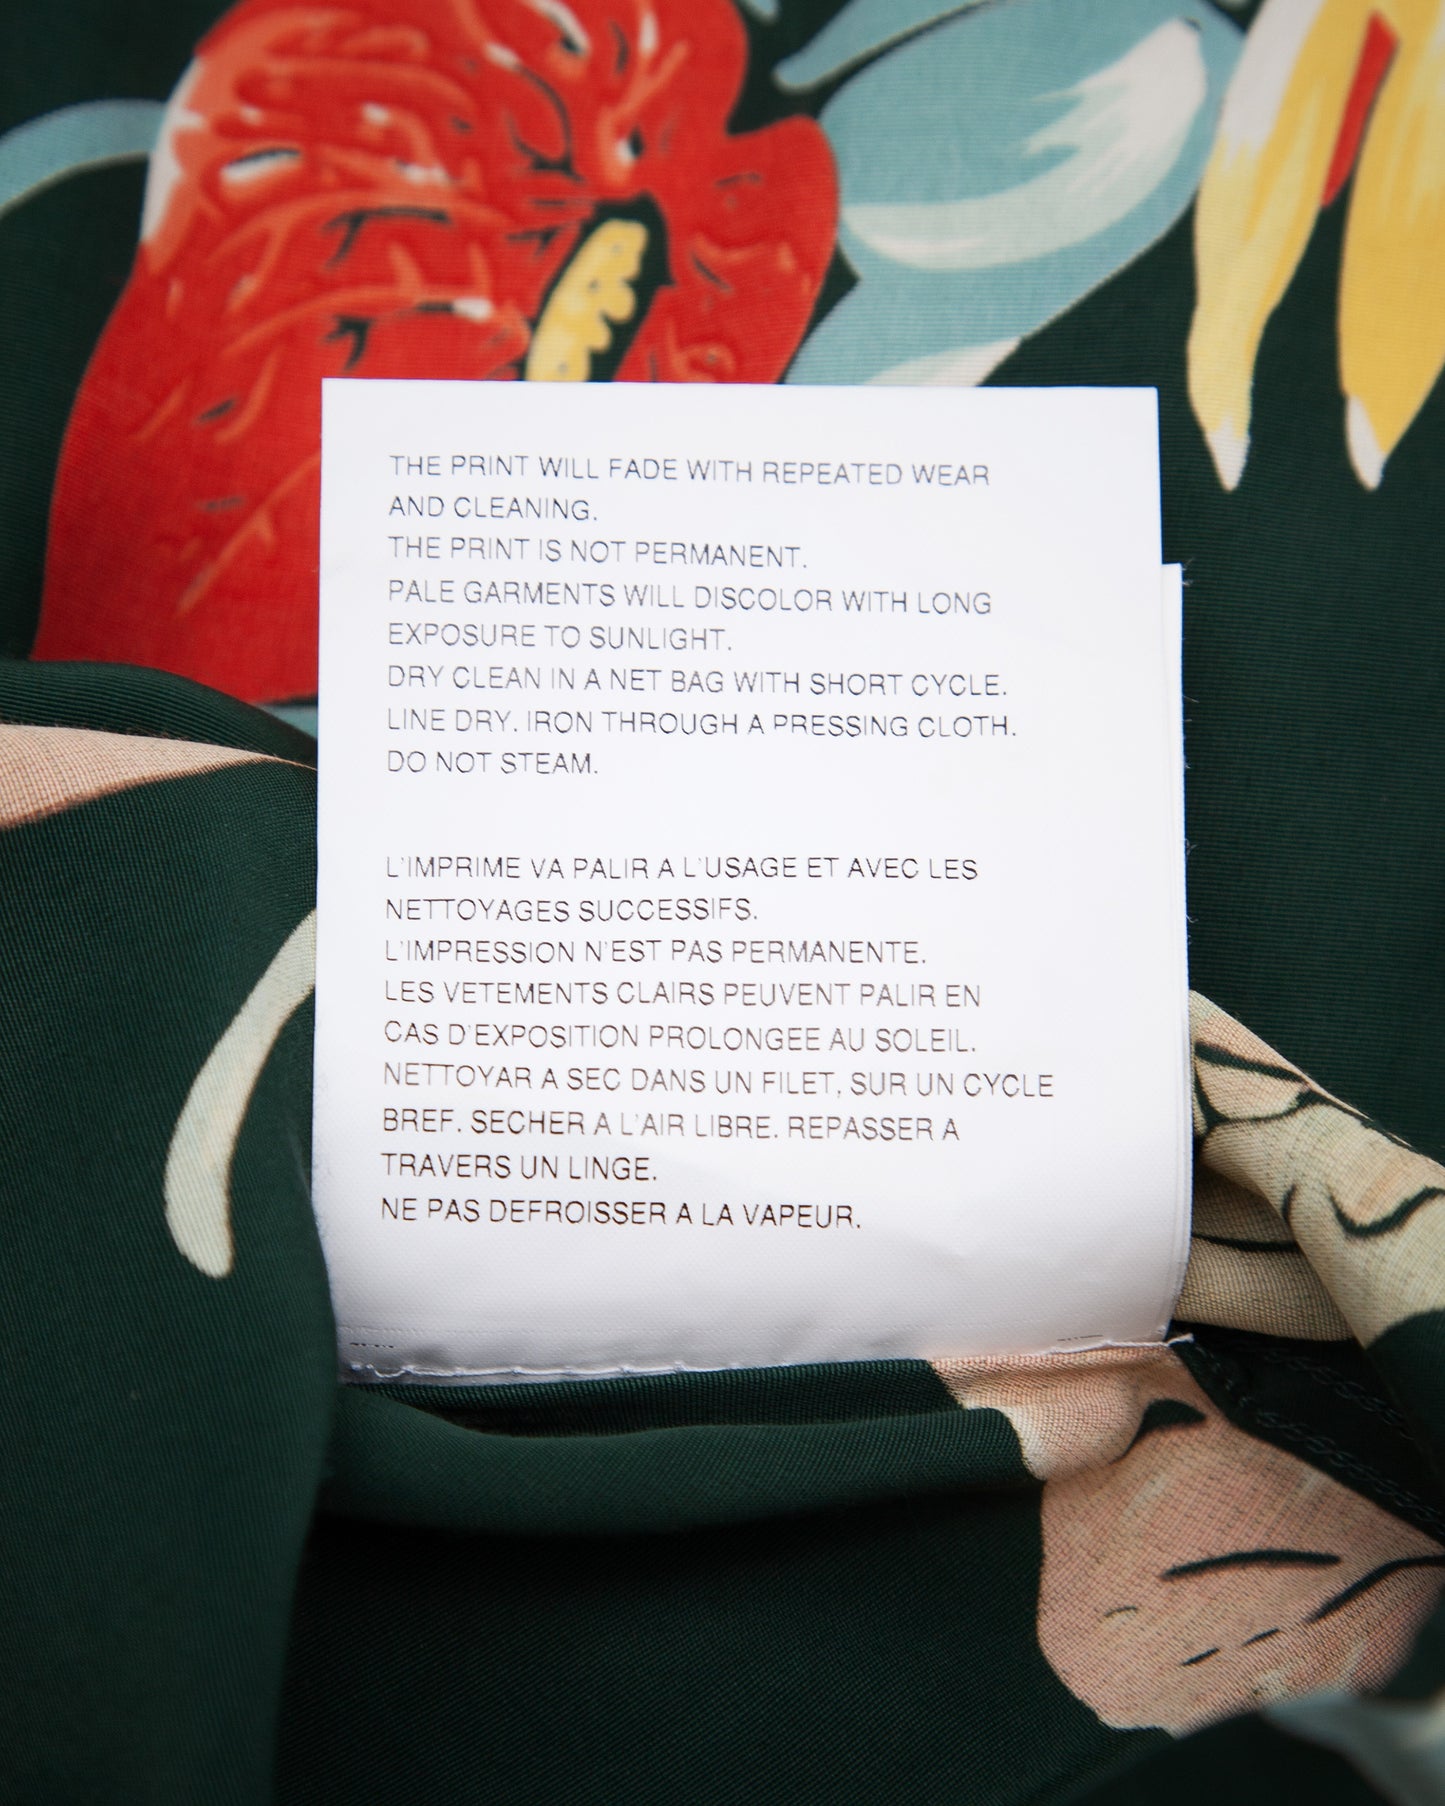 THE PRINT WILL FADE WITH REPEATED WEAR
AND CLEANING.
THE PRINT IS NOT PERMANENT.
PALE GARMENTS WILL DISCOLOR WITH LONG
EXPOSURE TO SUNLIGHT.
DRY CLEAN IN A NET BAG WITH SHORT CYCLE.
LINE DRY. IRON THROUGH A PRESSING CLOTH.
DO NOT STEAM.
L'IMPRIME VA PALIR A L'USAGE ET AVEC LES
NETTOYAGES SUCCESSIFS.
L'IMPRESSION N'EST PAS PERMANENTE.
LES VETEMENTS CLAIRS PEUVENT PALIR EN
CAS D'EXPOSITION PROLONGEE AU SOLEIL.
NETTOYAR A SEC DANS UN FILET, SUR UN CYCLE
BREF. SECHER A L'AIR LIBRE. REPASSER A
TRAVERS UN LINGE.
NE PAS DEFROISSER A LA VAPEUR.